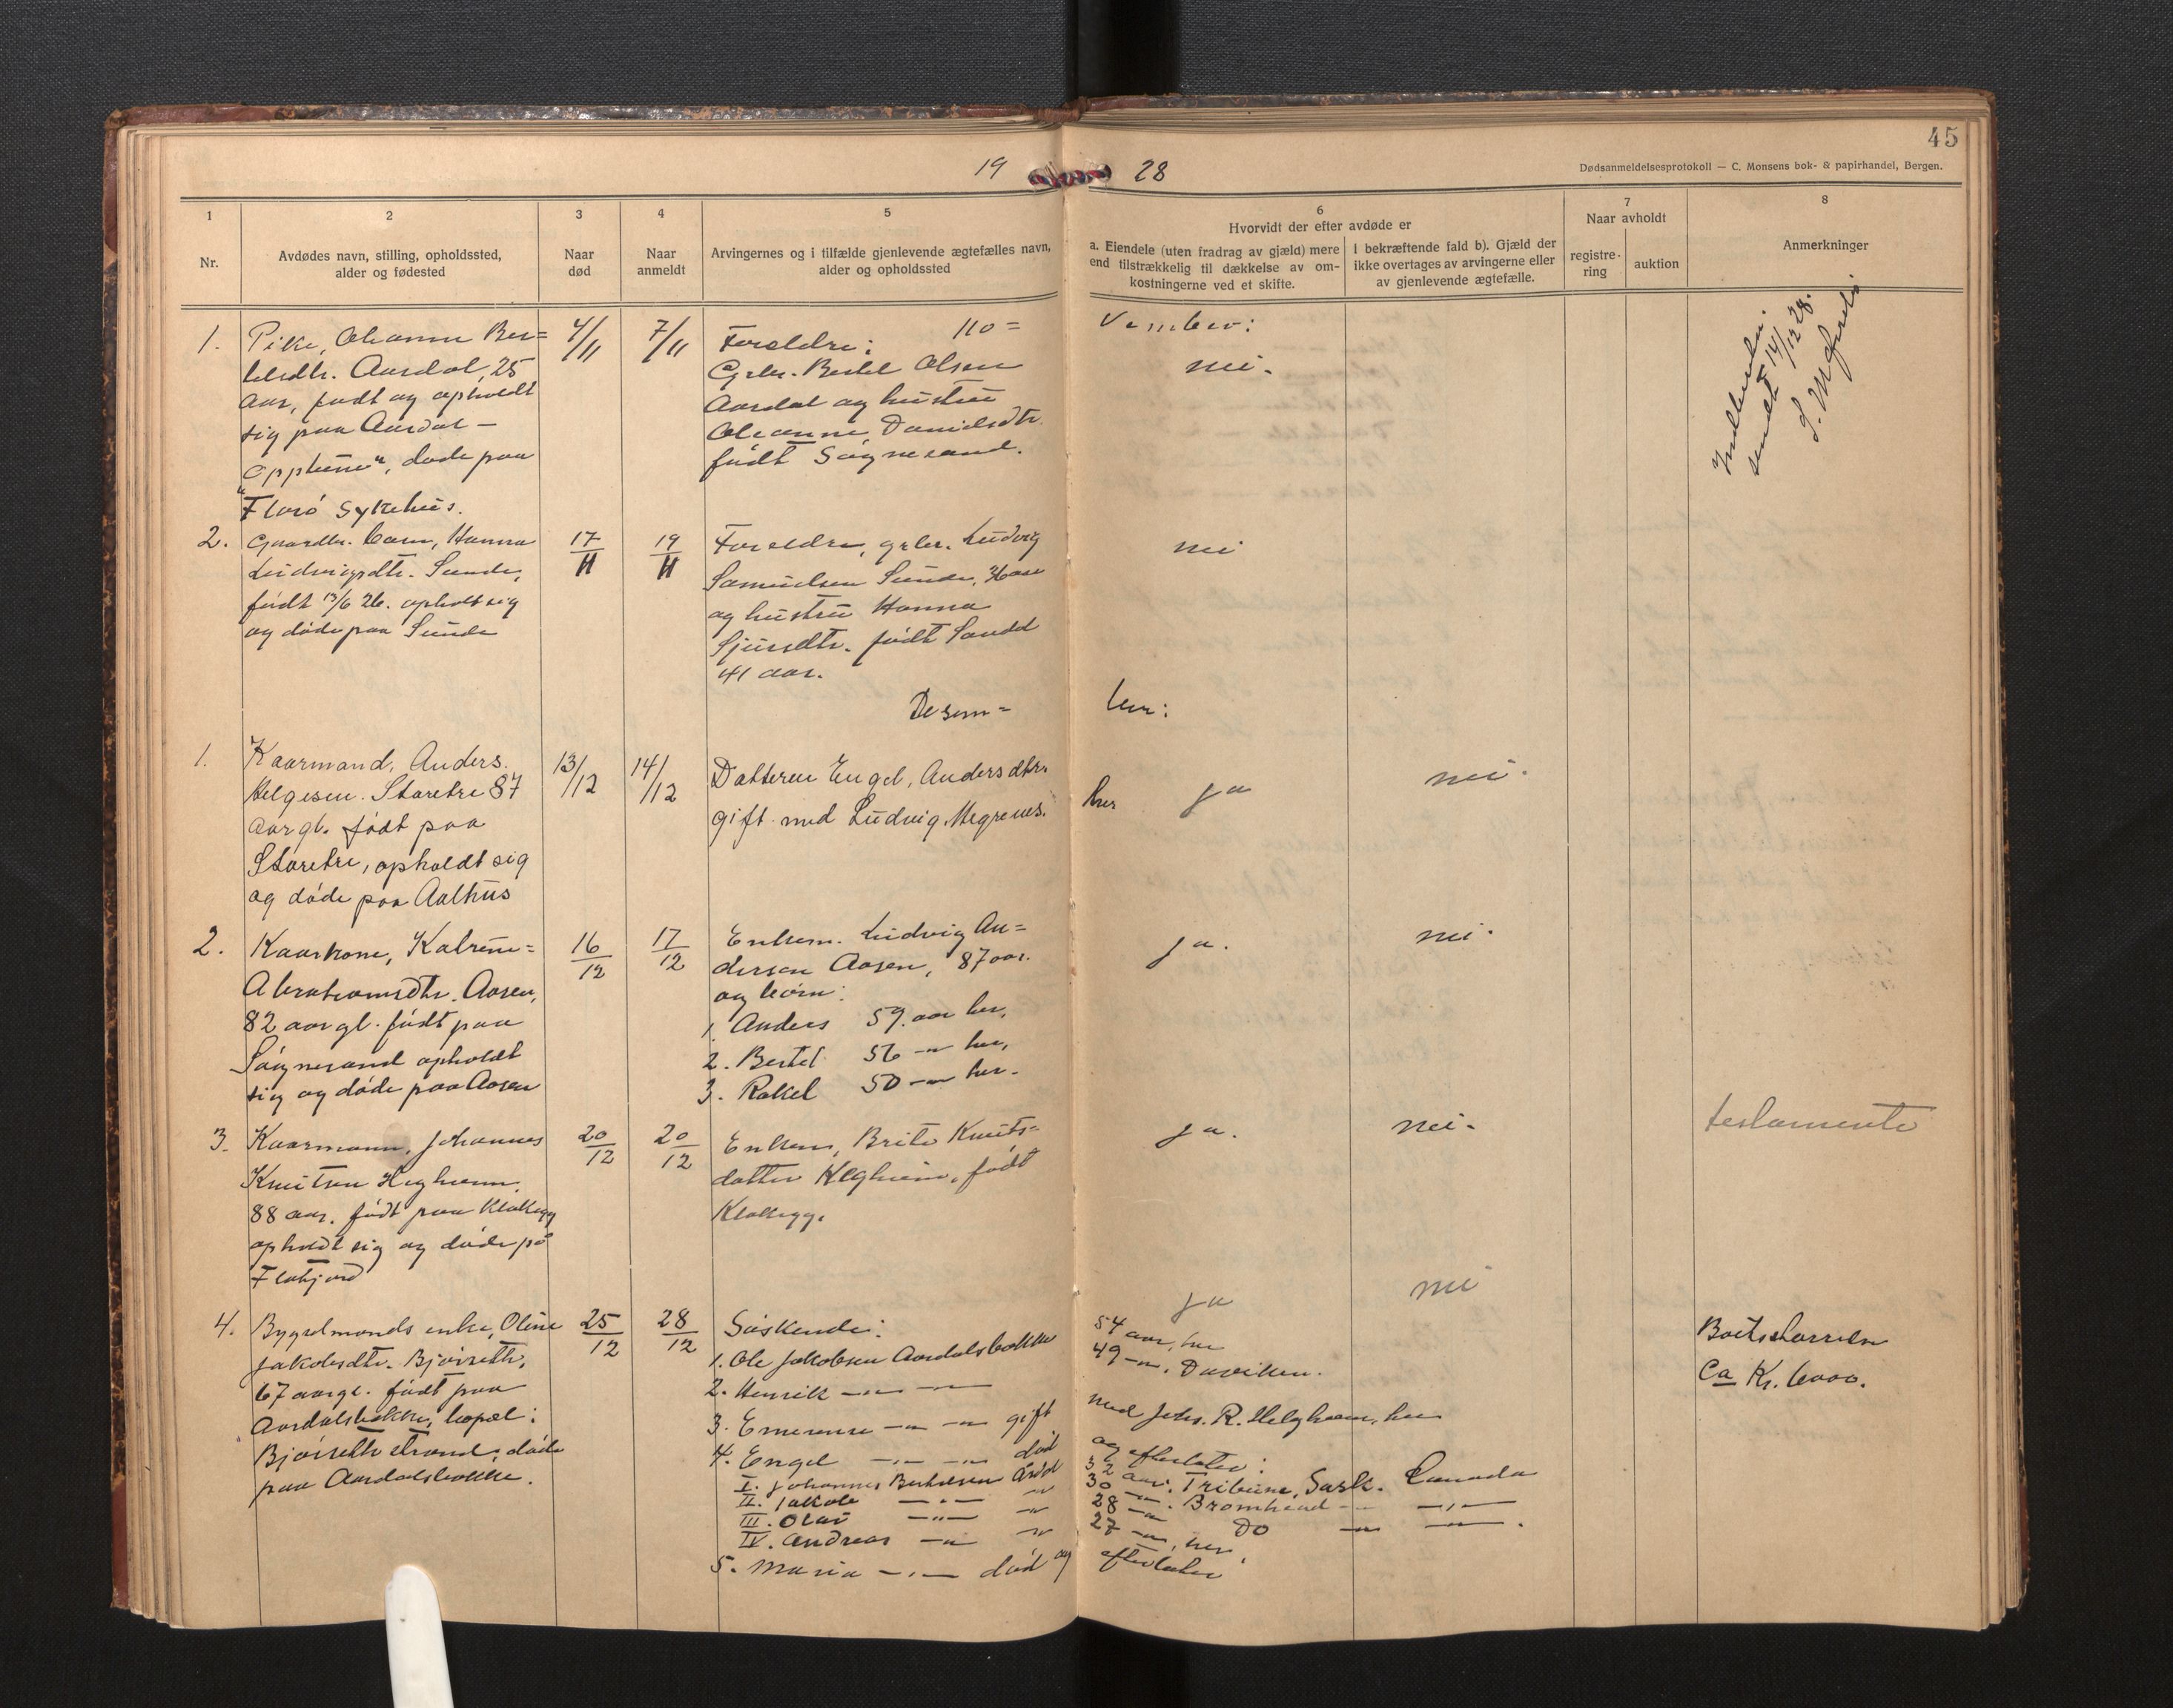 45
19 28
Dødsanmeldelsesprotokoll — C. Monsens bok- & papirhandel, Bergen.
1
2
3
4
5
6
7
8
Nr.
Avdødes navn, stilling, opholdssted,
alder og fødested
Naar
død
Naar
anmeldt
Arvingernes og i tilfælde gjenlevende ægtefælles navn,
alder og opholdssted
Hvorvidt der efter avdøde er
a. Eiendele (uten fradrag av gjæld) mere
end tilstrækkelig til dækkelse av om-
kostningerne ved et skifte.
I bekræftende fald b). Gjæld der
ikke overtages av arvingerne eller
av gjenlevende ægtefælle.
Naar avholdt
registre-
ring
auktion
Anmerkninger
No= vember:
1. Pike, Oleanna Ber=
telsdtr. Aardal, 25
aar, født og opholdt
sig paa Aardal —
Opptune", døde paa
"Florø Sykehus.
4/11
7/11
Foreldre:
Grbr. Bertel Olsen
Aardal og hustru
Oleanne Danielsdtr.
født Søgnesand.
nei.
sendt 14/12 28.
2. Gaardbr. barn, Hanna
Ludvigsdtr. Sunde,
født 13/6 26. opholt sig
og døde paa Sunde
17/11
19/11
Foreldre, grbr. Ludvig
Samuelsen Sunde, 36 aar
og hustru Hanna
Sjursdtr. født Sandal
41 aar.
nei
Desem= ber:
1. Kaarmand, Anders
Helgesen Støretre 87
aar gl. født paa
Støretre, opholdt sig
og døde paa Aalhus
13/12
14/12
Datteren Engel, Andersdtr.
gift med Ludvig Megrenes. her
ja
nei.
2. Kaarkone, Katrine=
Abrahamsdtr. Aasen,
82 aar gl. født paa
Søgnesand opholdt
sig og døde paa Aasen
16/12
17/12
Enkem. Ludvig An=
dersen Aasen, 87 aar.
og børn:
1. Anders 59. aar her,
2. Bertel 56 —"— her,
3. Rakel 50 —"— her.
ja.
nei.
3. Kaarmann, Johannes
Knutsen Helgheim,
88 aar. født paa Klakegg
opholdt sig og døde på
Flatjord
20/12
20/12
Enken, Brite Knuts=
datter Helgheim, født
Klakegg.
ja.
nei.
testamente
4. Bygselmands enke, Oline
Jakobsdtr. Bjørseth,
67 aar gl. født paa
Aardalsbakke, bopæl:
Bjørseth strand, døde
paa Aardalsbakke.
25/12
28/12
ja
nei
Søskende:
1. Ole Jakobsen Aardalsbakke 54 aar, her
2. Henrik —"— —"— 49 —"—. Davikken.
3. Emerense —"— —"— gift med Johs. R. Helgheim, her
4. Engel —"— —"— død og efterlater:
I. Johannes Bertelsen Årdal 32 aar. Tribune, Sask. Canada
II. Jakob —"— —"— 30 —"—. Bromhead —"— —"—
III. Olai —"— —"— 28 —"— Do —"— —"—.
IV. Andreas —"— —"— 27 —"—, her,
5. Maria —"— død og efterlater
Boets størrelse
Ca Kr. 6000.